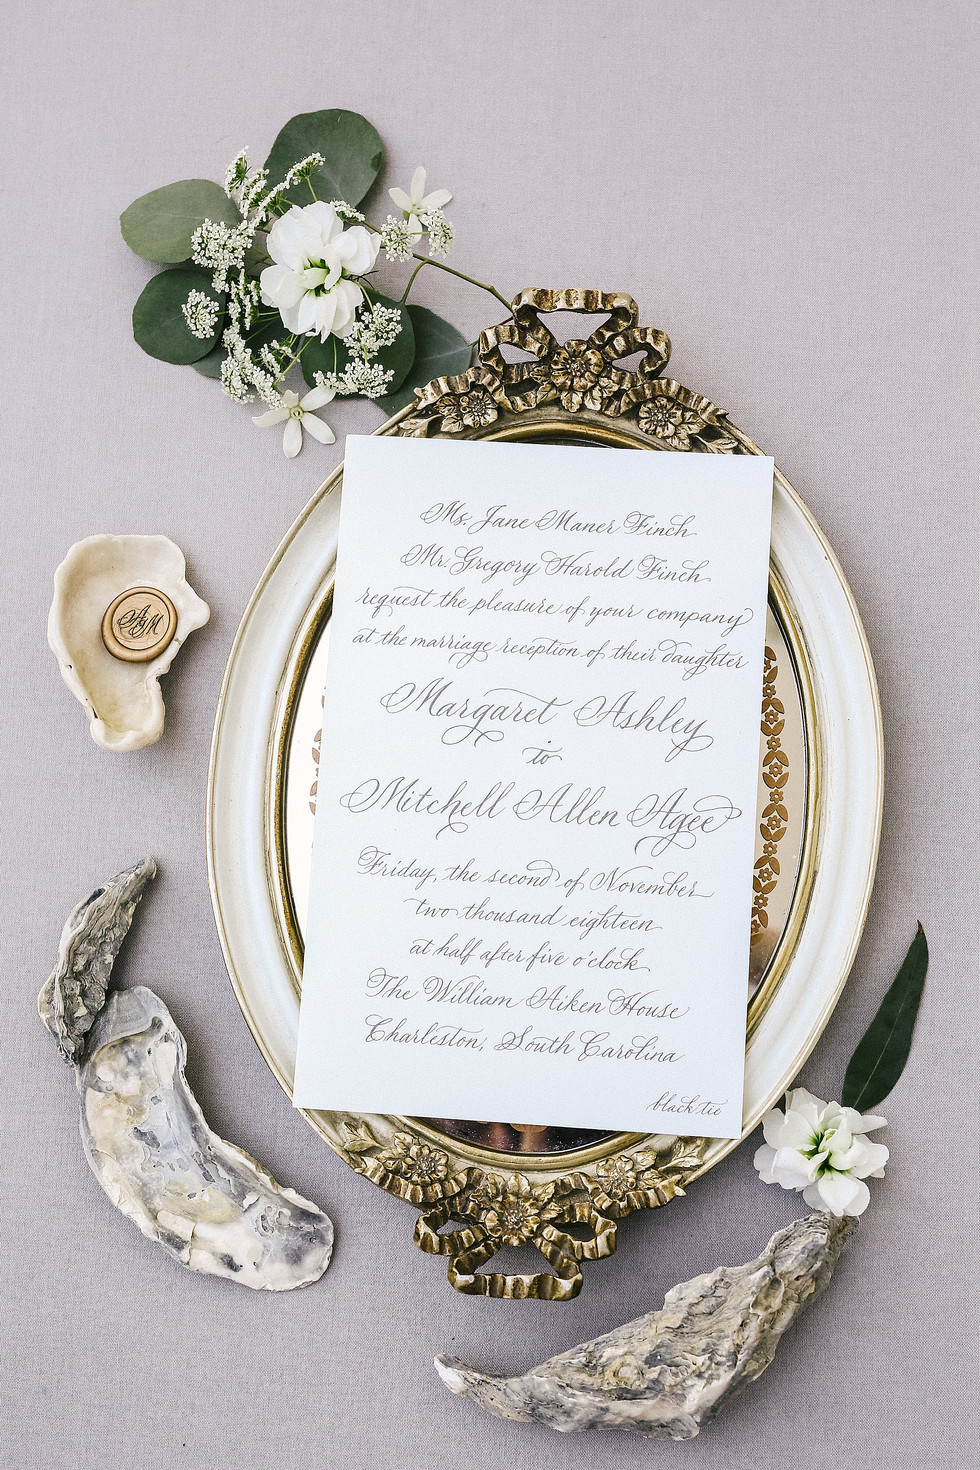 Ms. Jane Maner Finch
Mr. Gregory Harold Finch
request the pleasure of your company
at the marriage reception of their daughter
Margaret Ashley
to
Mitchell Allen Agee
Friday, the second of November
two thousand eighteen
at half after five o'clock
The William Aiken House
Charleston, South Carolina
black tie